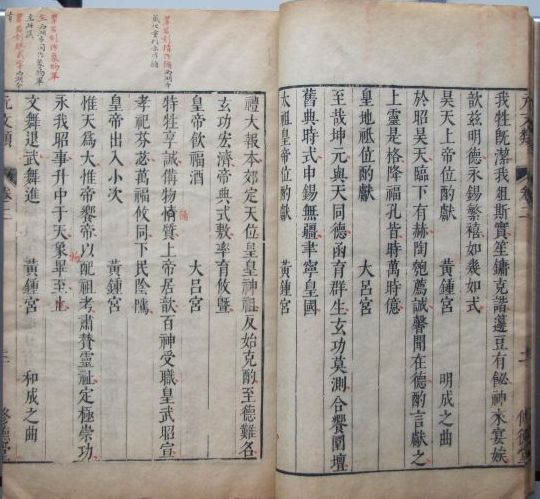 元文類 卷二 修德堂
我牲旣潔我俎斯實笙鏞克諧籩豆有飶神來宴娭
歆兹明德永錫繁禧如幾如式
昊天上帝位酌獻 黃鍾宮 明成之曲
於昭昊天臨下有赫陶匏薦誠馨聞在德酌言獻之
上靈是格降福孔皆時萬時億
皇地祗位酌獻 大呂宮
至哉坤元與天同德函育群生玄功莫測合饗圜壇
舊典時式申錫無疆聿寧皇國
太祖皇帝位酌獻 黃鍾宮
禮大報本郊定天位皇皇神祖反始克酌至德難名
玄功宏濟帝典式敷率育攸曁
皇帝飲福酒 大呂宮
特牲享誠備物情質上帝居歆百神受職皇武昭宣
孝祀芬苾萬福攸同下民陰隲
皇帝出入小次 黃鍾宮
惟天為大惟帝饗帝以配祖考肅贊靈祉定極崇功
永我昭事升中于天象畢至止
物
文舞退武舞進 黃鍾宮 和成之曲
元文類 卷二 修德堂